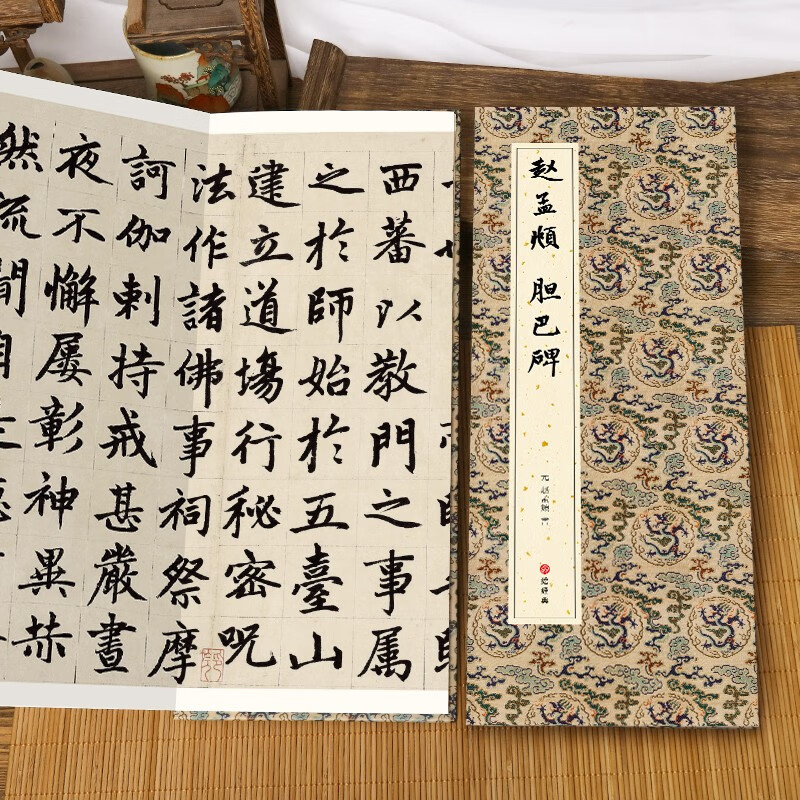 西蕃以教門之事属
之於師始於五臺山
建立道場行秘密呪
法作諸佛事祠祭摩
訶伽剌持戒甚嚴晝
夜不懈屡彰神異赫
然流聞自
赵孟頫 胆巴碑
元 赵孟頫 書